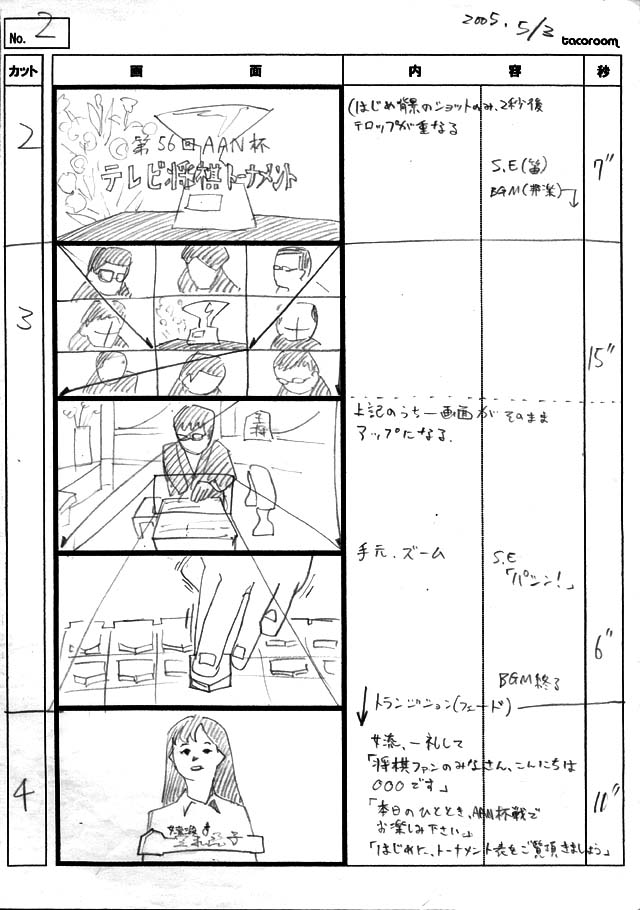 No. 2
2005. 5/3
tacoroom
カット 画 面 内 容 秒
2
第56回AAN杯
テレビ将棋トーナメント
(はじめ背景のショットのみ、2秒後
テロップが重なる
S.E(笛)
BGM(邦楽)
7"
3
15"
上記のうち一画面がそのまま
アップになる.
手元.ズーム
S.E
「パシン!」
6"
BGM終る
トランジション(フェード)
4
女流、一礼して
「将棋ファンのみなさん、こんにちは
○○○です」
「本日のひととき、AAN杯戦で
お楽しみ下さい」
「はじめに、トーナメント表をご覧頂きましょう」
11"